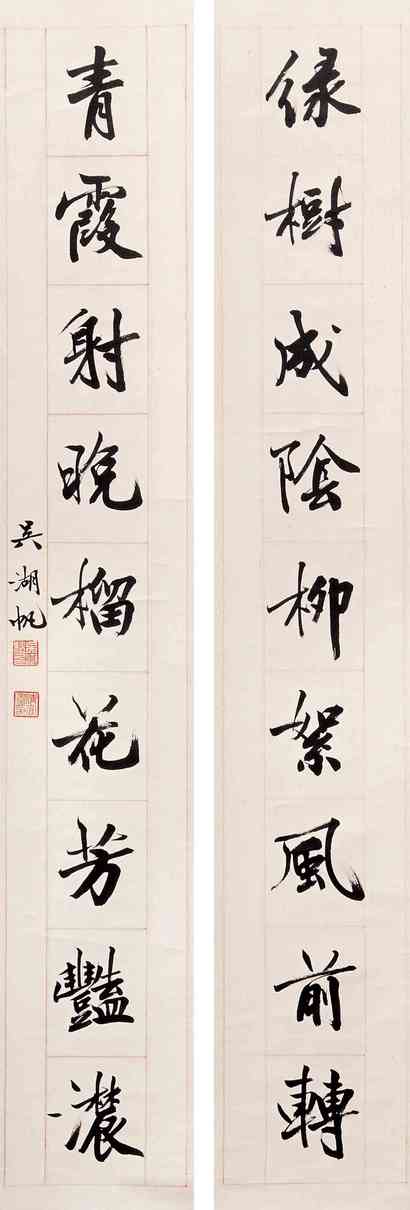 綠樹成陰柳絮風前轉
青霞射晚榴花芳豔濃
吳湖帆